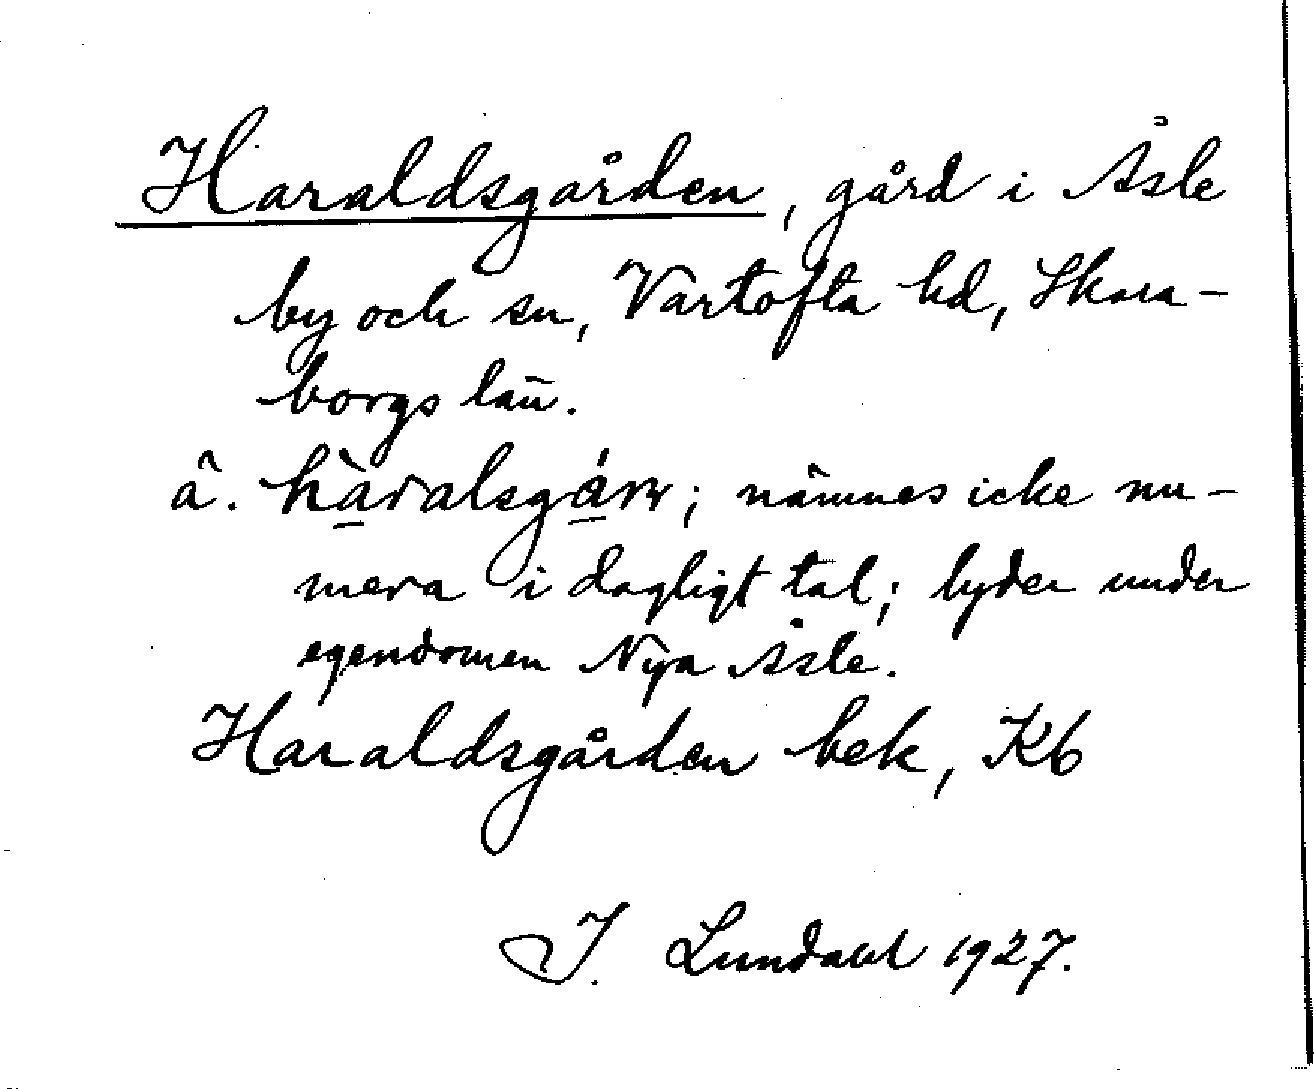 Haraldsgården, gård i Åsle
by och sn, Vartofta hd, Skara-
borgs län.
ä. hàralsgá̠rn; nämnes icke nu-
mera i dagligt tal; lyder under
egendomen Nya Åsle.
Haraldsgården bek, Kb
I. Lundahl 1927.